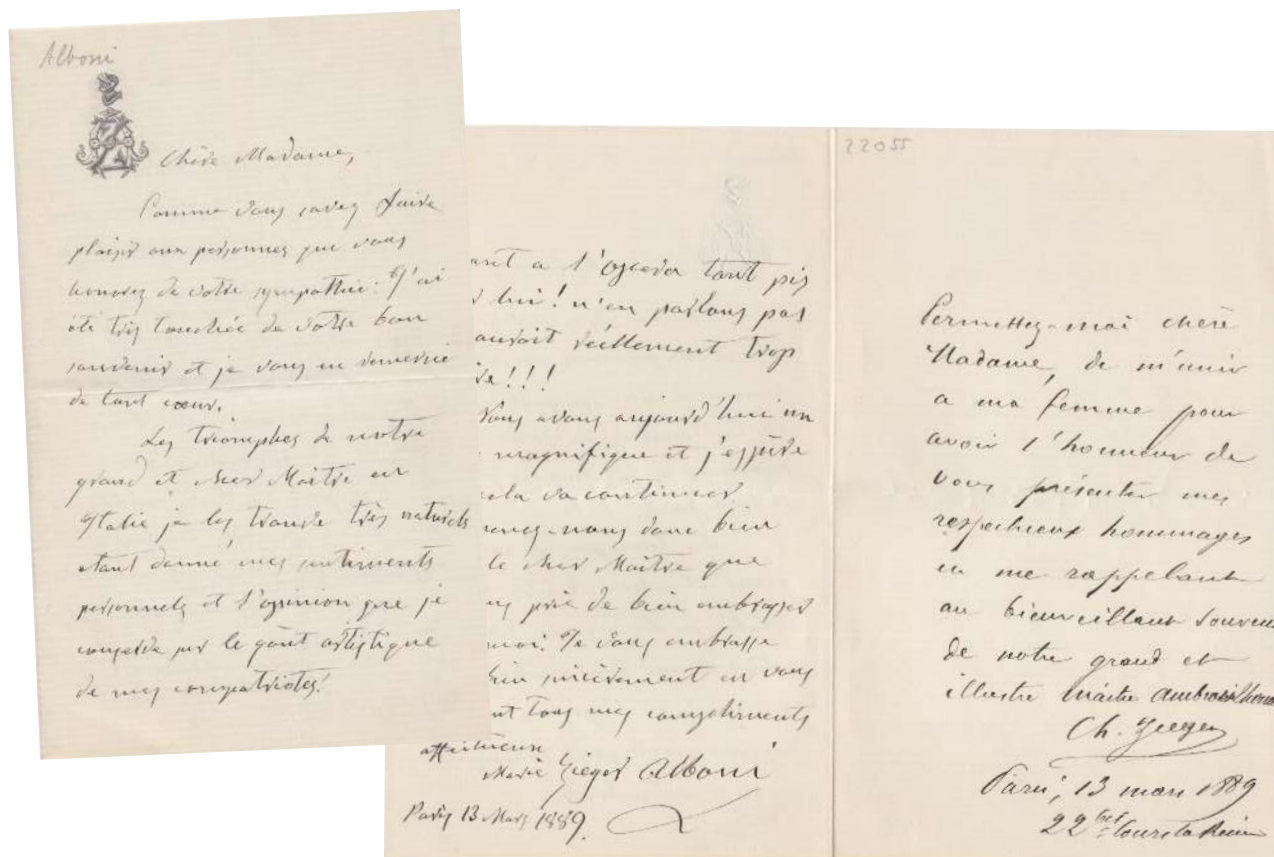 Alboni
Chère Madame,
Comme vous savez faire
plaisir aux personnes que vous
honorez de votre sympathie! J'ai
été très touchée de votre bon
souvenir et je vous en remercie
de tout cœur.
Les triomphes de notre
grand et cher Maître en
Italie je les trouve très naturels
étant donné mes sentiments
personnels et l'opinion que je
conserve sur le goût artistique
de mes compatriotes!
ant a l'opéra tant pis
lui! n'en parlons pas
aurait réellement trop
re!!!
Nous avons aujourd'hui un
magnifique et j'espère
cela va continuer
nez-nous donc bien
le cher Maître que
us prie de bien embrasser
moi. Je vous embrasse
bien sincèrement en vous
nt tous mes compliments
affectueux
Marie Zieger Alboni
Paris 13 Mars 1889.
22055
Permettez-moi chère
Madame, de m'unir
a ma femme pour
avoir l'honneur de
vous présenter mes
respectueux hommages
en me rappelant
au bienveillant souveni
de notre grand et
illustre maitre ambroise Thomas
Ch. Zieger
Paris, 13 mars 1889
22 bis Cours la Reine